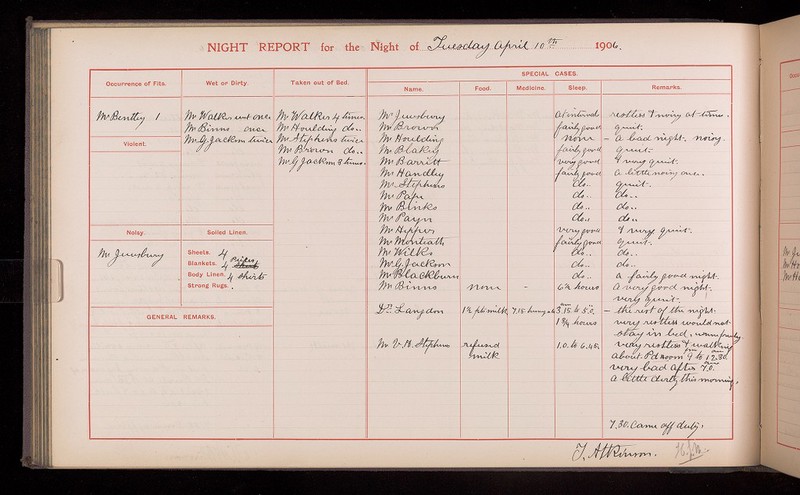 NIGHT REPORT for the Night of Tuesday April 10th 1906.
Occurrence of Fits.
Wet or Dirty.
Taken out of Bed.
SPECIAL CASES.
Name.
Food.
Medicine.
Sleep.
Remarks.
Mr Bentley 1
Violent.
Noisy.
Mr Jewsbury
Mr Walker wet once
Mr Binns once
Mr G. Jackson twice
Soiled Linen.
Sheets. 4
Blankets. 4
Body Linen. 4 shirts
Strong Rugs.
Mr Walker 4 times
Mr Houlding do..
Mr Stephens twice
Mr Brown do..
Mr G Jackson 3 times.
GENERAL REMARKS.
Mr Jewsbury at intervals restless & noisy at times.
Mr Brown fairly good quiet.
Mr Houlding none - a bad night. noisy.
Mr Blakey fairly good quiet.
Mr Barriott very good & very quiet.
Mr Handley fairly good a little noisy once.
Mr Stephens do.. quiet.
Mr Pape do.. do..
Mr Binks do.. do..
Mr Payn do.. do..
Mr very good & very quiet.
Mr Monteath fairly good quiet.
Mr Wilks do.. do..
Mr G. Jackson do.. do..
Mr Blackburn do.. a fairly good night.
Mr Binns none - 6¾ hours a very good night.
very quiet.
Dr Langdon 1½ pts milk 3.15 to 5.0. - the rest of the night
1¾ hours very restless would not
stay in bed,
Mr V.B. Stephens refused milk 1.0. to 6.45. very restless & walking
about. Pd room 9 to 12.30
very bad after 7.0.
a little dirty this morning.
7.30. Came off duty.
T. Atkinson.